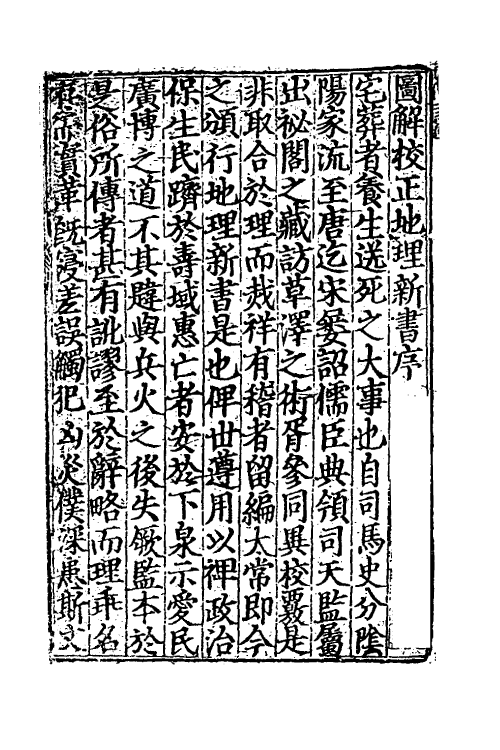 圖解校正地理新書序
宅葬者養生送死之大事也自司馬史分陰
陽家流至唐迄宋爰詔儒臣典領司天監屬
出祕閣之藏訪草澤之術胥參同異校覈是
非取合於理而災祥有稽者留編太常即今
之頒行地理新書是也俾世遵用以裨政治
保生民躋於壽域惠亡者安於下泉示愛民
廣博之道不其韙與兵火之後失厥監本於
是俗所傳者甚有訛謬至於辭略而理乖名
實革既寖差誤觸犯凶災僕深患斯